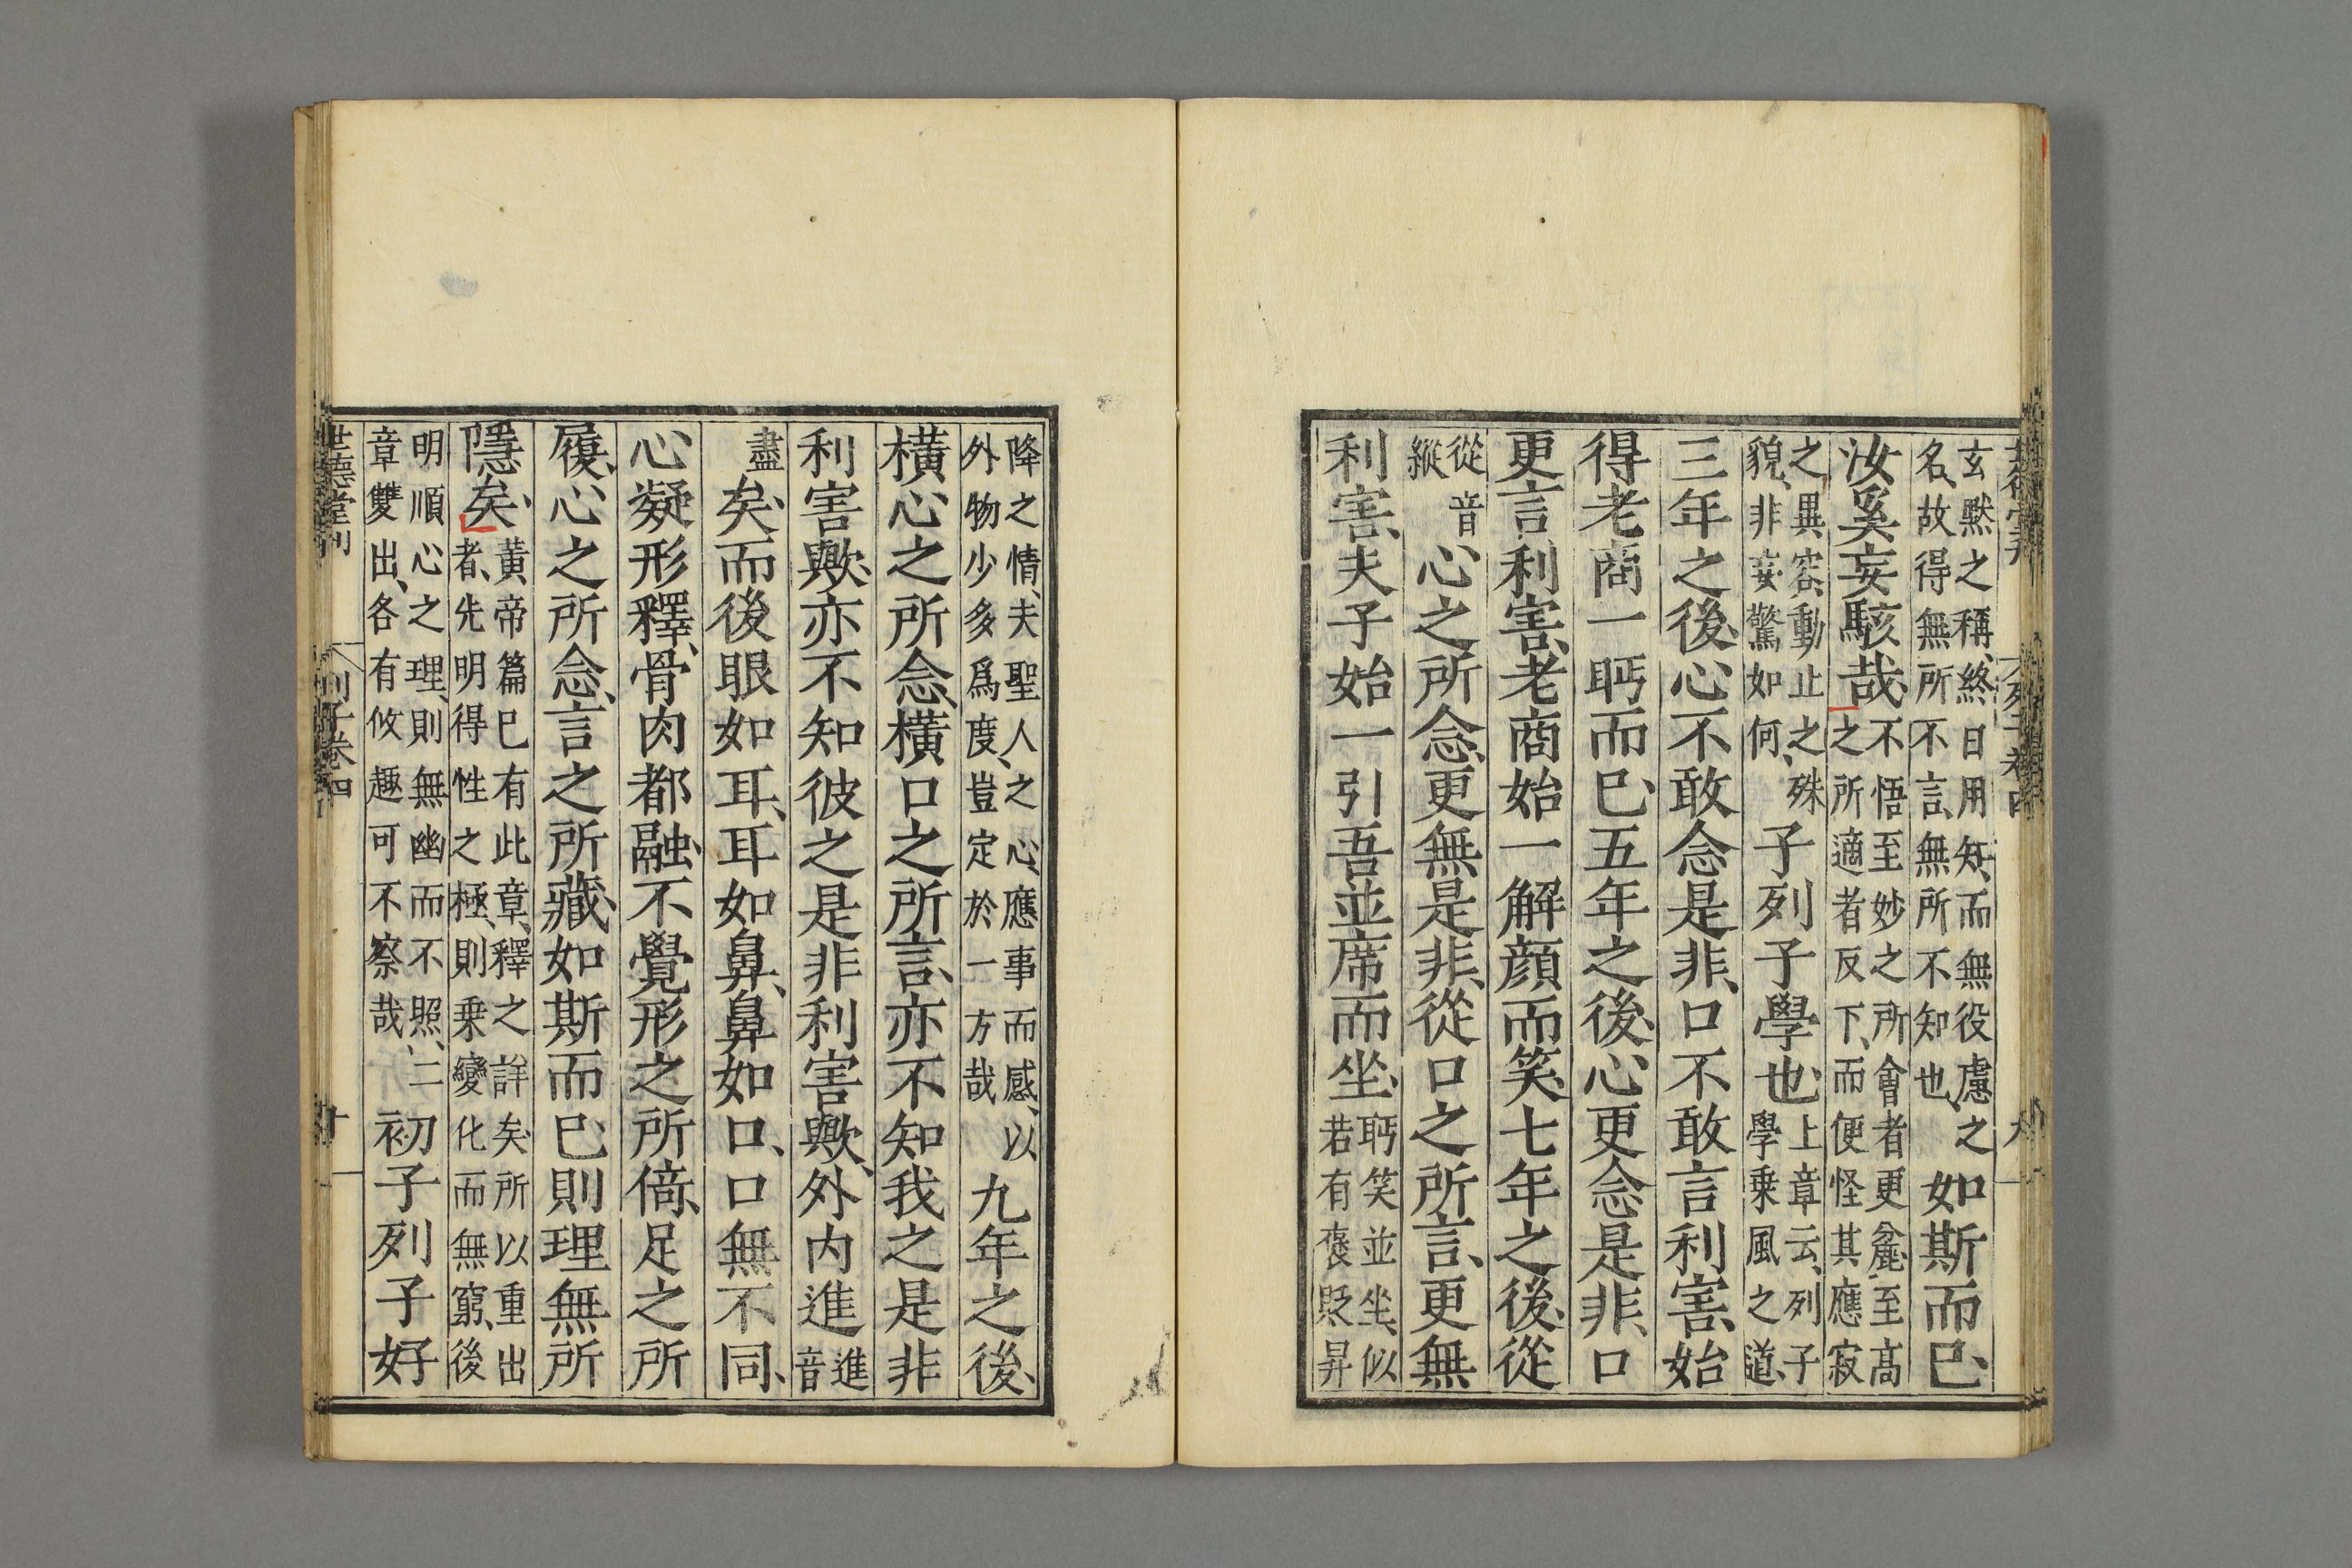 玄默之稱、終日用知、而無役慮之名、故得無所不言、無所不知也、如斯而已、
汝奚妄駭哉、不悟至妙之所會者更麄、至高之所適者反下、而便怪其應寂
之異容、動止之殊貌、非妄驚如何、子列子學也、上章云、列子學乗風之道、
三年之後、心不敢念是非、口不敢言利害、始
得老商一眄而已、五年之後、心更念是非、口
更言利害、老商始一解顔而笑、七年之後、從
從音縱心之所念、更無是非、從口之所言、更無
利害、夫子始一引吾並席而坐、眄笑並坐、似若有褒貶昇
降之情、夫聖人之心、應事而感、以外物少多爲度、豈定於一方哉九年之後、
橫心之所念、橫口之所言、亦不知我之是非
利害歟、亦不知彼之是非利害歟、外内進進音
盡矣、而後眼如耳、耳如鼻、鼻如口、口無不同、
心凝形釋、骨肉都融、不覺形之所倚、足之所
履、心之所念、言之所藏、如斯而已、則理無所
隱矣、黄帝篇已有此章、釋之詳矣、所以重出者、先明得性之極、則乗變化而無窮、後
明順心之理、則無幽而不照、二章雙出、各有攸趣可不察哉初子列子好
世德堂刊 列子卷四 十